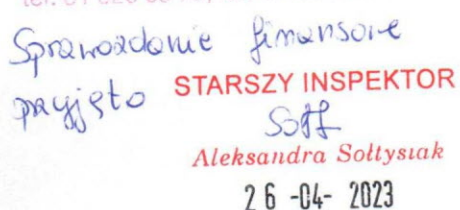 Sprawozdanie finansowe
przyjęto STARSZY INSPEKTOR
Sołt
Aleksandra Sołtysiak
26 -04- 2023